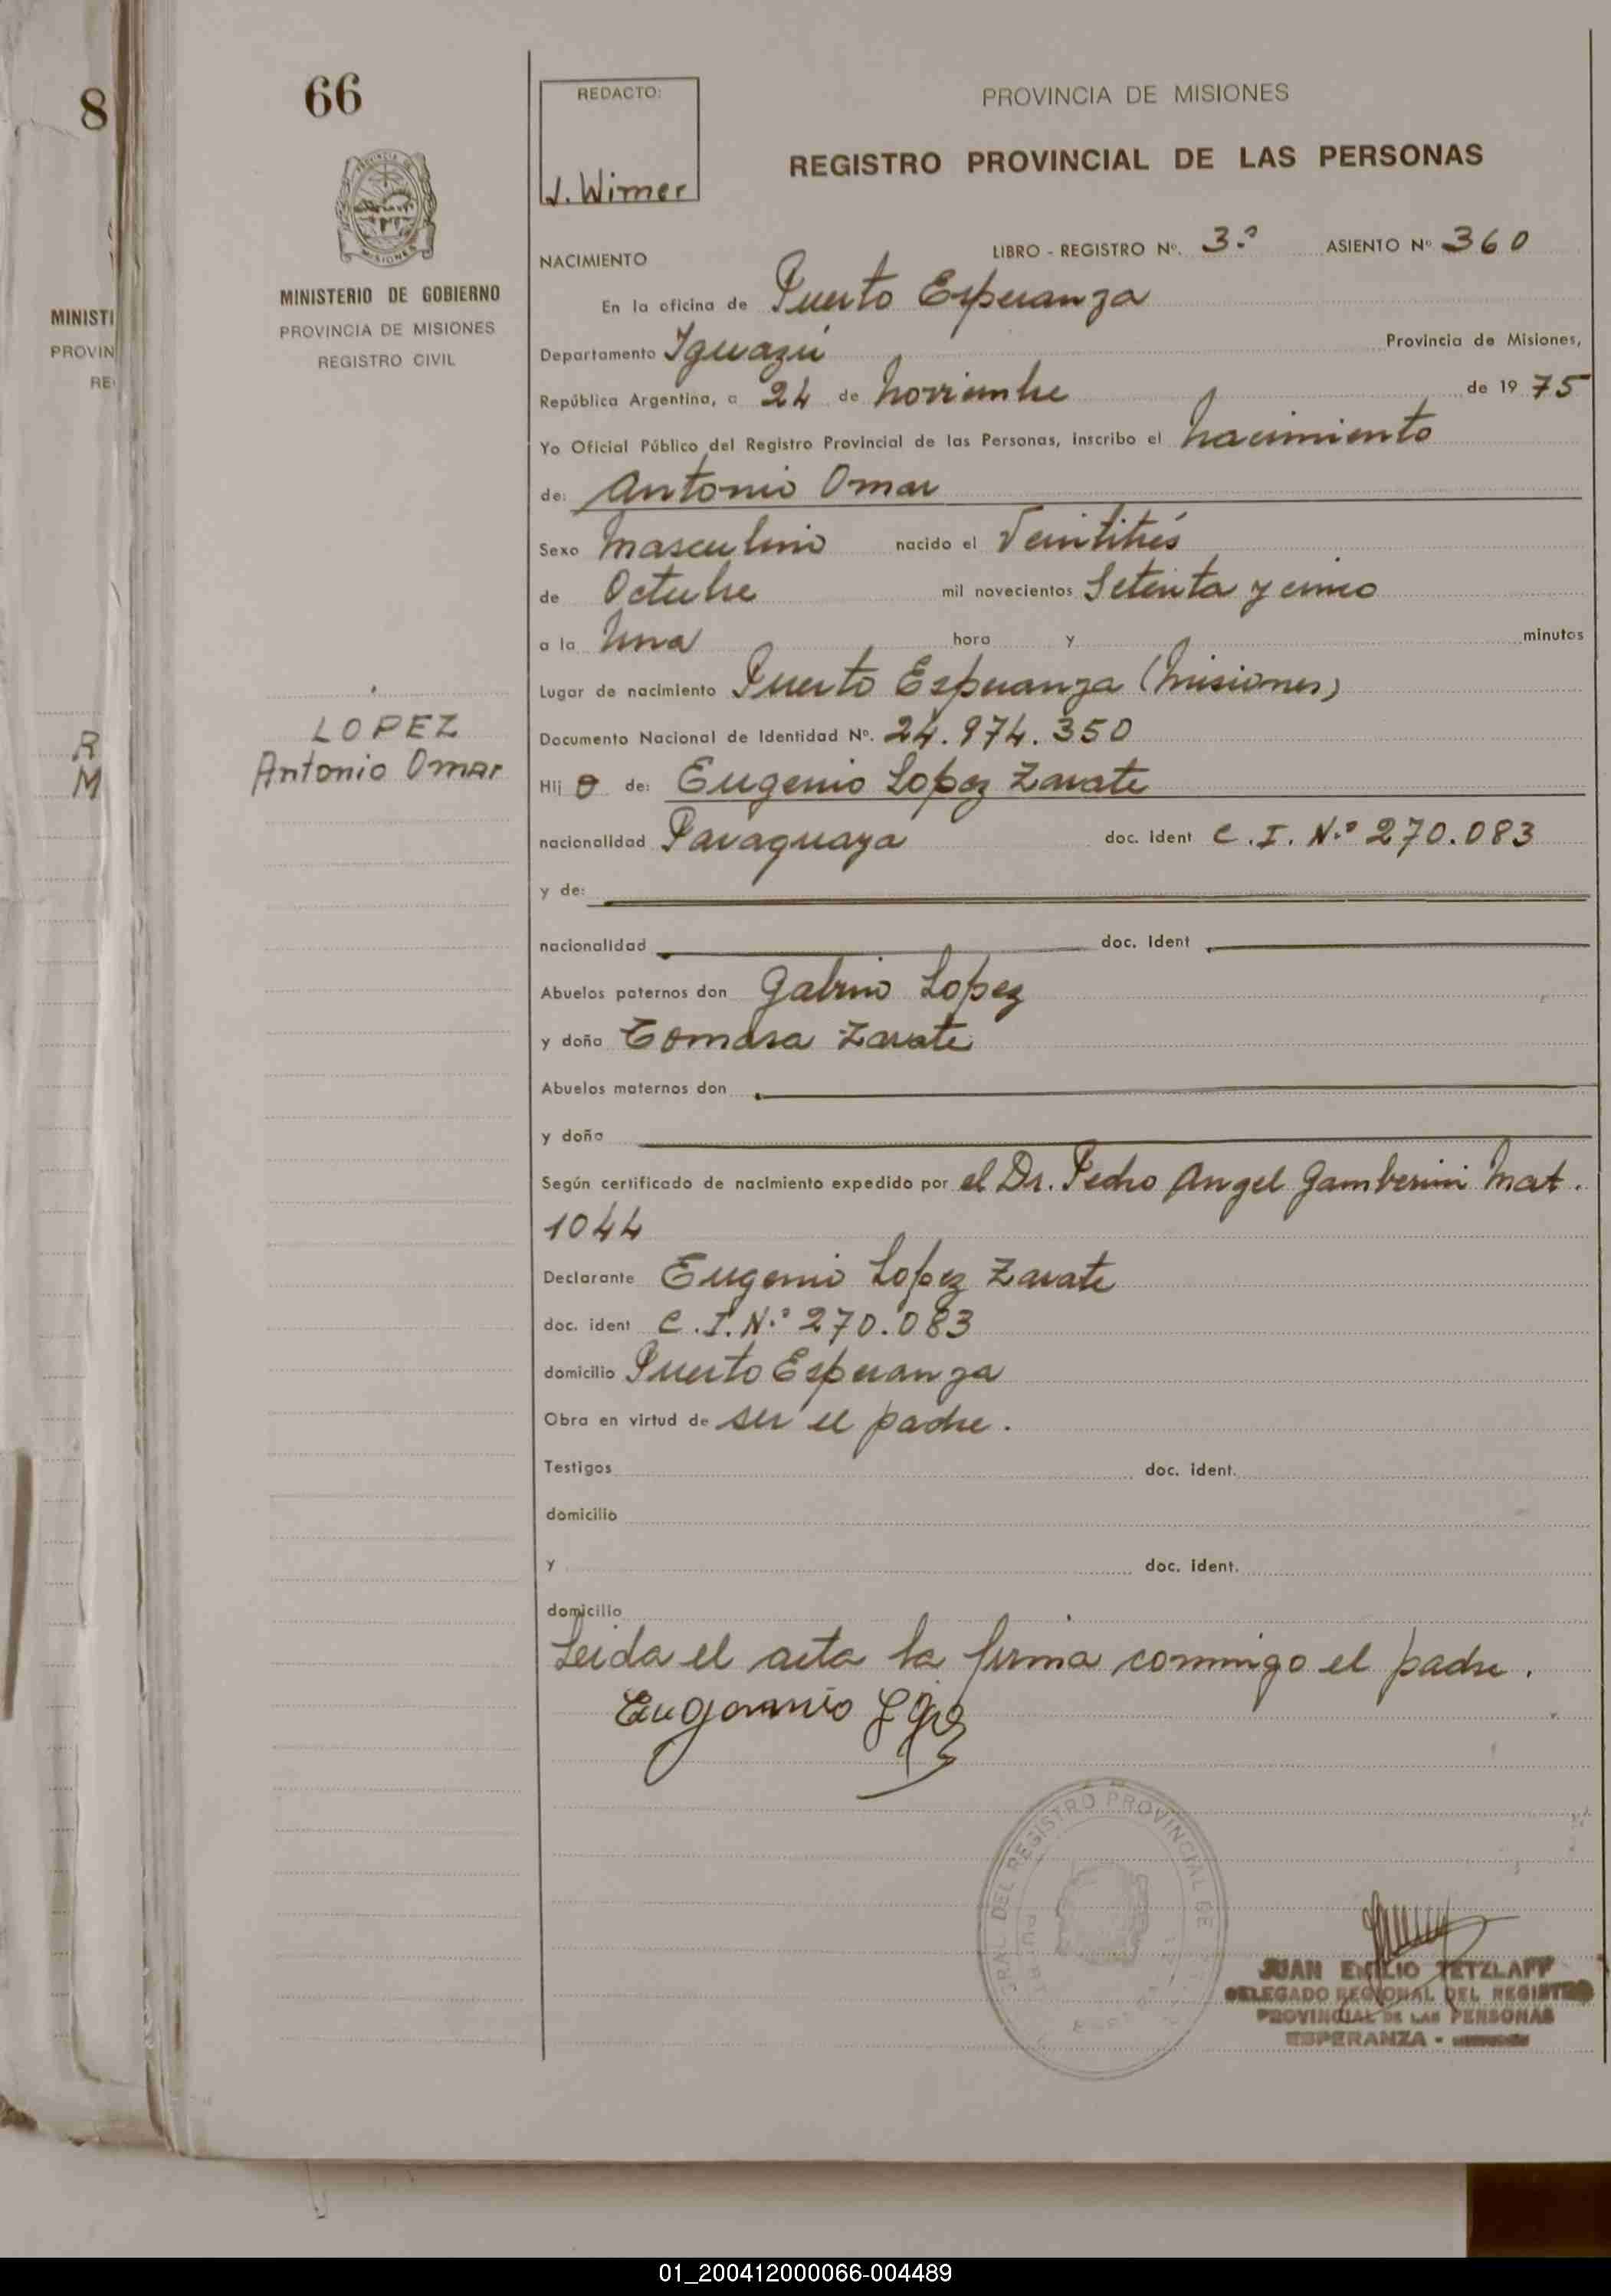 8
MINISTI
PROVIN
RE
R
M
66
MINISTERIO DE GOBIERNO
PROVINCIA DE MISIONES
REGISTRO CIVIL
LOPEZ
Antonio Omar
REDACTO:
J. Wimer
PROVINCIA DE MISIONES
REGISTRO PROVINCIAL DE LAS PERSONAS
NACIMIENTO LIBRO - REGISTRO Nº. 3º ASIENTO Nº 360
En la oficina de Puerto Esperanza
Departamento Iguazú Provincia de Misiones,
República Argentina, a 24 de Noviembre de 19 75
Yo Oficial Público del Registro Provincial de las Personas, inscribo el Nacimiento
de: Antonio Omar
Sexo Masculino nacido el Veintitrés
de Octubre mil novecientos Setenta y cinco
a la Una hora y minutos
Lugar de nacimiento Puerto Esperanza (Misiones)
Documento Nacional de Identidad Nº. 24.974.350
Hij o de: Eugenio Lopez Zarate
nacionalidad Paraguaya doc. ident C.I. Nº 270.083
y de:
nacionalidad doc. Ident
Abuelos paternos don Gabino Lopez
y doña Tomasa Zarate
Abuelos maternos don
y doña
Según certificado de nacimiento expedido por el Dr. Pedro Angel Gamberini Mat.
1044
Declarante Eugenio Lopez Zarate
doc. ident C.I. Nº 270.083
domicilio Puerto Esperanza
Obra en virtud de ser el padre.
Testigos doc. ident.
domicilio
y doc. ident.
domicilio
Leida el acta la firma conmigo el padre.
Eugennio
GRAL. DEL REGISTRO PROVINCIAL DE
JUAN EMILIO TETZLAFF
DELEGADO REGIONAL DEL REGISTRO
PROVINCIAL DE LAS PERSONAS
ESPERANZA -
01_200412000066-004489